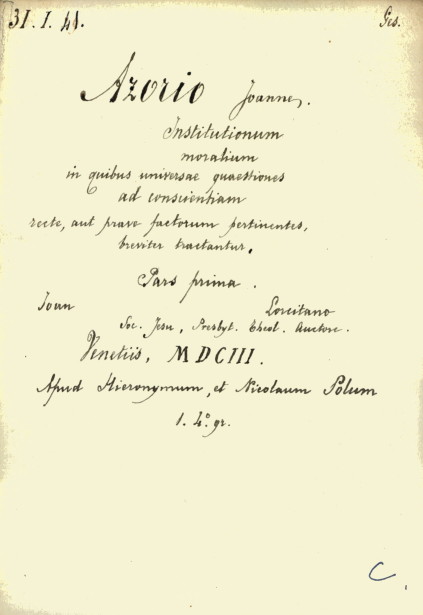 31. I. 41. Ges.
Azorio Joannes.
Institutionum
moralium
in quibus universae quaestiones
ad conscientiam
recte, aut prave factorum pertinentes,
breviter tractantur.
Pars prima.
Ioan Lorcitano
Soc. Jesu, Presbyt. Theol. Auctore.
Venetiis, MDCIII.
Apud Hieronymum, et Nicolaum Polum
1. 4º gr.
C